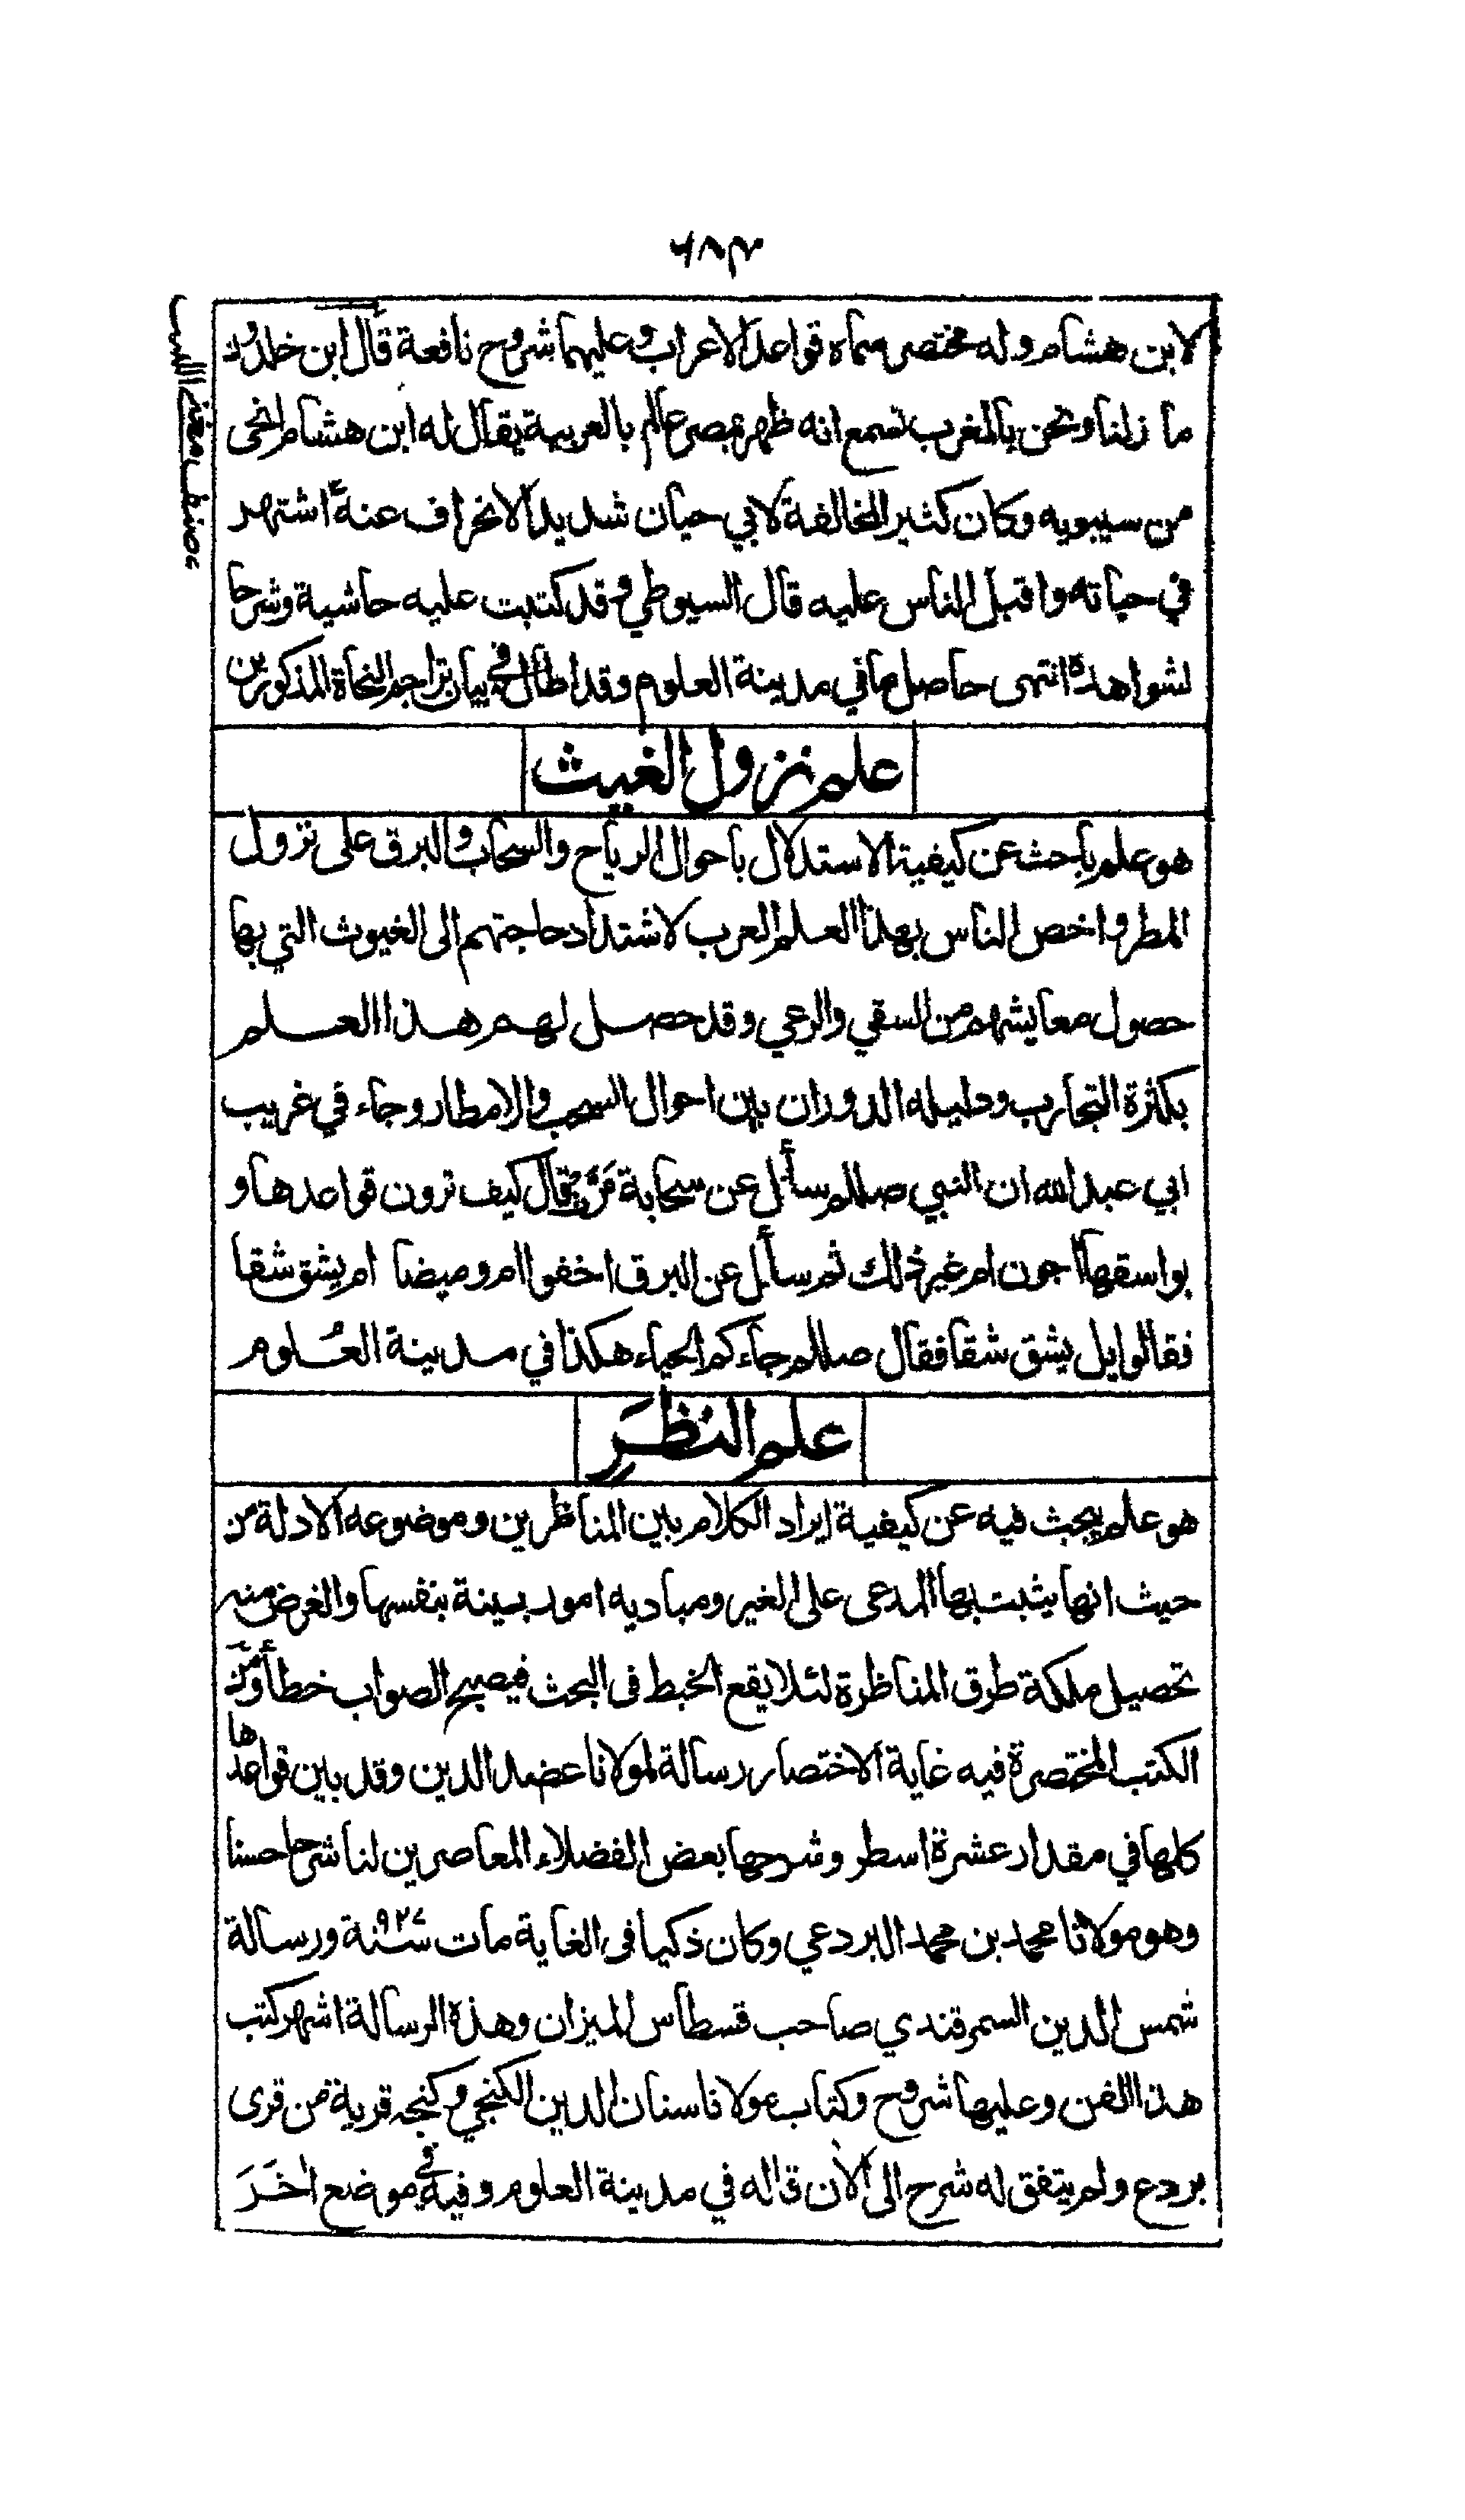 ٦٨٣
لابن هشام وله مختصر سماه قواعد الاعراب وعليهما شروح نافعة قال ابن خلدون
ما زلنا ونحن بالمغرب نسمع انه ظهر بمصر عالم بالعربية يقال له ابن هشام انحى
من سيبويه وكان كثير المخالفة لابي حيان شديد الانحراف عنه اشتهر
في حياته واقبل الناس عليه قال السيوطي وقد كتبت عليه حاشية وشرحا
لشواهده انتهى حاصل ما في مدينة العلوم وقد اطال في بيان تراجم النحاة المذكورين
علم نزول الغيث
هو علم باحث عن كيفية الاستدلال باحوال الرياح والسحاب والبرق على نزول
المطر واخص الناس بهذا العلم العرب لاشتداد حاجتهم الى الغيوث التي بها
حصول معايشهم من السقي والرعي وقد حصل لهم هذا العلم
بكثرة التجارب ودليله الدوران بين احوال السحب والامطار وجاء في غريب
ابي عبد الله ان النبي صللم سأل عن سحابة مرت فقال كيف ترون قواعدها و
بواسقها اجون ام غير ذلك ثم سأل عن البرق اخفوا ام وميضا ام يشق شقا
فقالوا بل يشق شقا فقال صللم جاءكم الحياء هكذا في مدينة العُلوم
علم النظَرِ
هو علم يبحث فيه عن كيفية ايراد الكلام بين المناظرين وموضوعه الادلة من
حيث انها يثبت بها المدعى على الغير ومباديه امور بينة بنفسها والغرض منه
تحصيل ملكة طرق المناظرة لئلا يقع الخبط فى البحث فيصح الصواب خطأ ومن
الكتب المختصرة فيه غاية الاختصار رسالة لمولانا عضد الدين وقد بين قواعدها
كلها في مقدار عشرة اسطر وشرحها بعض الفضلاء المعاصرين لنا شرحا حسنا
وهو مولانا محمد بن محمد البردعي وكان ذكيا فى الغاية مات سنة ٩٢٧ ورسالة
شمس الدين السمرقندي صاحب قسطاس الميزان وهذه الرسالة اشهر كتب
هذا الفن وعليها شروح وكتاب مولانا سنان الدين الكنجي وكنجه قرية من قرى
بردع ولم يتفق له شرح الى الآن قاله في مدينة العلوم وفيه في موضع اٰخَرَ